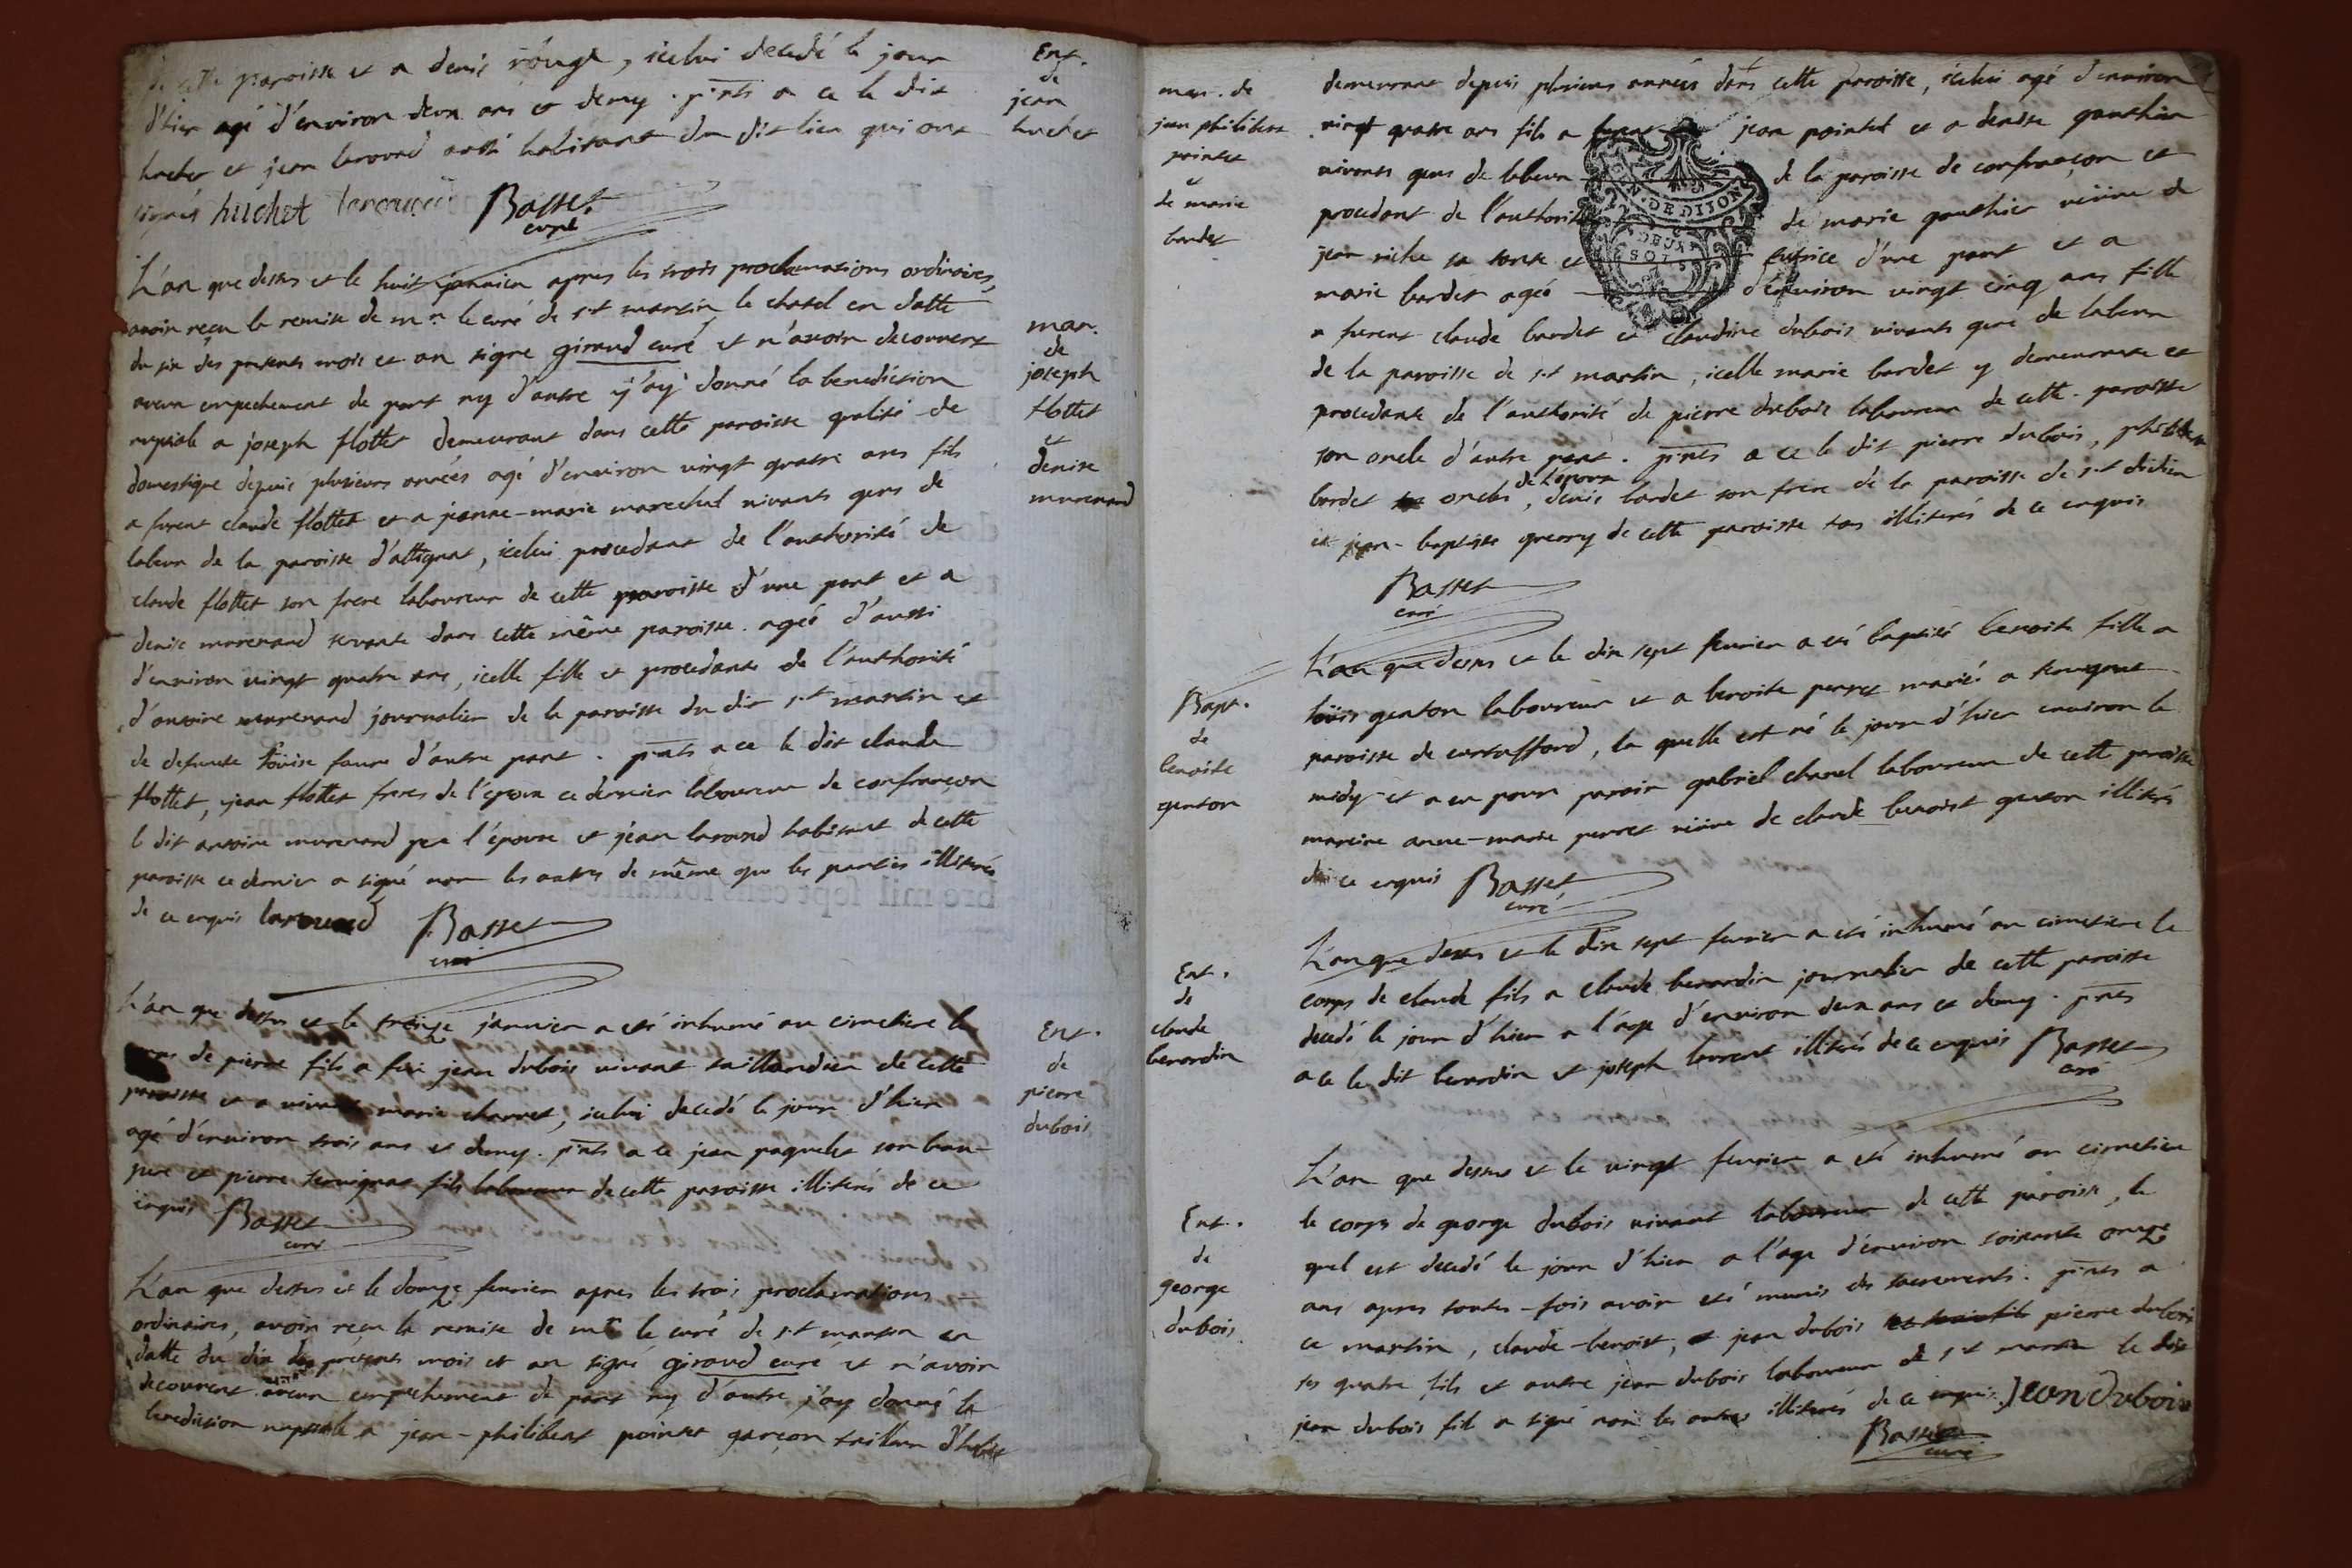 de cette paroisse et a denis rouge, icelui decedé le jour
d'hier agé d'environ deux ans et demy. pnts a ce le dit
huchet et jean larouad aussi habitant du dit lieu qui ont
signés huchet larouad Basset
curé
Ent.
de
jean
huchet
L'an que dessus et le huit janvier apres les trois proclamations ordinaires,
avoir reçu la remise de mr. le curé de st martin le chatel en datte
du six des presents mois et an signé giraud curé et n'avoir decouvert
aucun empechement de part ny d'autre j'ay donné la benediction
nuptiale a joseph flottet demeurant dans cette paroisse qualité de
domestique depuis plusieurs années agé d'environ vingt quatre ans fils
a furent claude flottet et a jeanne-marie marechal vivants gens de
labeur de la paroisse d'attignat, icelui procedant de l'authorité de
claude flottet son frere laboureur de cette paroisse d'une part et a
denise murenand servante dans cette même paroisse agée d'aussi
d'environ vingt quatre ans, icelle fille et procedante de l'authorité
d'antoine murenand journalier de la paroisse du dit st martin et
de defunte loüise faure d'autre part. pnts a ce le dit claude
flottet, jean flottet freres de l'epoux ce dernier laboureur de confrançon
le dit antoine murenand pere l'epouse et jean larouad habitant de cette
paroisse ce dernier a signé non les autres de même que les parties illiterés
de ce enquis larouad Basset
curé
mar.
de
joseph
flottet
et
denise
murenand
L'an que dessus et le treize janvier a eté inhumé au cimetiere le
corps de pierre fils a feu jean dubois vivant taillandier de cette
paroisse et a vivante marie charnet, icelui decedé le jour d'hier
agé d'environ trois ans et demy. pnts a ce jean paquelet son beau-
pere et pierre servignat fils laboureur de cette paroisse illiterés de ce
enquis Basset
curé
Ent.
de
pierre
dubois
L'an que dessus et le douze fevrier apres les trois proclamations
ordinaires, avoir reçu la remise de mr le curé de st martin en
datte du dix des présents mois et an signé giraud curé et n'avoir
decouvert aucun empechement de part ny d'autre j'ay donné la
benediction nuptiale a jean-philibert pointet garçon tailleur d'habit
mar. de
jean philibert
pointet
et
de marie
bardet
demeurant depuis plusieurs années dans cette paroisse, icelui agé d'environ
vingt quatre ans fils a furent jean pointet et a denise gauthier
vivants gens de labeur de la paroisse de confrançon et
procedant de l'authorité de marie gauthier veüve de
jean riche sa tante et tutrice d'une part et a
marie bardet agée d'environ vingt cinq ans fille
GEN. DE DIJON
DEUX
SOLS
a furent claude bardet et claudine dubois vivants gens de labeur
de la paroisse de st martin, icelle marie bardet y demeurante et
procedante de l'authorité de pierre dubois laboureur de cette paroisse
son oncle d'autre part. pnts a ce le dit pierre dubois, philibert
bardet oncles de l'epoux, denis bardet son frere de la paroisse de st didier
et jean-baptiste greory de cette paroisse tous illiterés de ce enquis
Basset
curé
Bapt.
de
benoite
genton
L'an que dessus et le dix sept fevrier a eté baptisé benoite fille a
loüis genton laboureur et a benoite perret mariés a
paroisse de curtafford, la quelle est né le jour d'hier environ le
midy et a eu pour parain gabriel chanel laboureur de cette paroisse
mareine anne-marie perret veüve de claude benoist genton illiterés
de ce enquis Basset
curé
Ent.
de
claude
berardin
L'an que dessus et le dix sept fevrier a eté inhumé au cimetiere le
corps de claude fils a claude berardin journalier de cette paroisse
decedé le jour d'hier a l'age d'environ deux ans et demy. pnts
a ce le dit berardin et joseph laurent illiterés de ce enquis Basset
curé
Ent.
de
george
dubois
L'an que dessus et le vingt fevrier a eté inhumé au cimetiere
le corps de george dubois vivant laboureur de cette paroisse, le
quel est decedé le jour d'hier a l'age d'environ soixante onze
ans apres toutes-fois avoir eté munis des sacrements. pnts a
ce martin, claude-benoist, jean dubois pierre dubois
ses quatre fils et autre jean dubois laboureur de st martin le dit
jean dubois fils a signé non les autres illiterés de ce enquis. jean dubois
Basset
curé